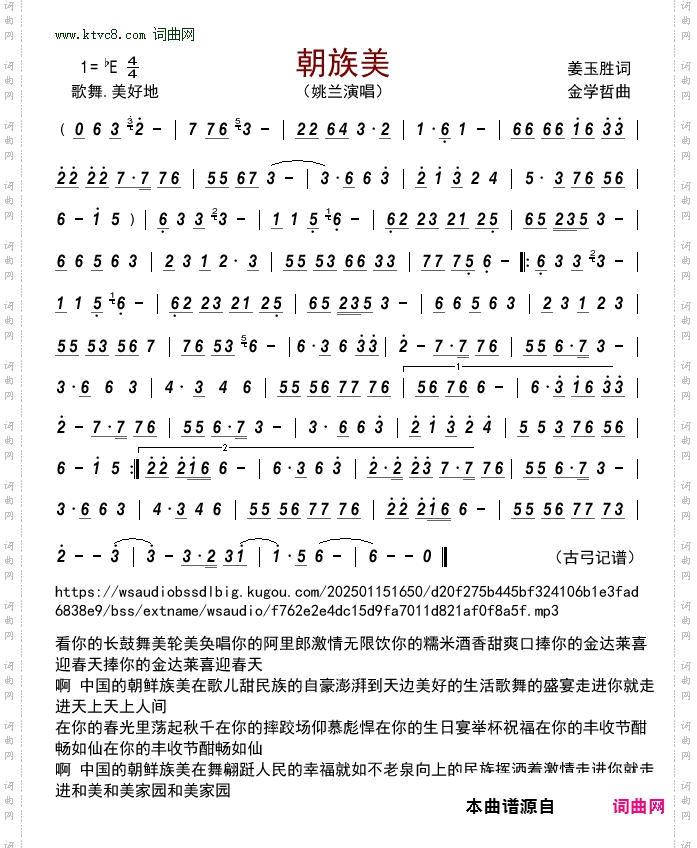 www.ktvc8.com 词曲网
朝族美
1=♭E 4/4
姜玉胜词
歌舞.美好地
（姚兰演唱）
金学哲曲
( 0 6 3 3̇2̇ - | 7 7 6 5 3 - | 2 2 6 4 3 · 2 | 1 · 6̣ 1 - | 6 6 6 6 1̇ 6 3̇ 3̇ |
2̇ 2̇ 2̇ 2̇ 7 · 7 7 6 | 5 5 6 7 3 - | 3 · 6 6 3̇ | 2̇ 1̇ 3̇ 2 4 | 5 · 3 7 6 5 6 |
6 - 1̇ 5 ) | 6̣ 3 3 2 3 - | 1 1 5̣ 1 6̣ - | 6̣ 2 2 3 2 1 2 5̣ | 6 5 2 3 5 3 - |
6 6 5 6 3 | 2 3 1 2 · 3 | 5 5 5 3 6 6 3 3 | 7 7 7 5̣ 6̣ - ‖: 6̣ 3 3 2 3 - |
1 1 5̣ 1 6̣ - | 6̣ 2 2 3 2 1 2 5̣ | 6 5 2 3 5 3 - | 6 6 5 6 3 | 2 3 1 2 3 |
5 5 5 3 5 6 7 | 7 6 5 3 5 6 - | 6 · 3 6 3̇ 3̇ | 2̇ - 7 · 7 7 6 | 5 5 6 · 7 3 - |
3 · 6 6 3 | 4 · 3 4 6 | 5 5 5 6 7 7 7 6 | 1 5 6 7 6 6 - | 6 · 3̇ 1̇ 6 3̇ 3̇ |
2̇ - 7 · 7 7 6 | 5 5 6 · 7 3 - | 3 · 6 6 3̇ | 2̇ 1̇ 3̇ 2̇ 4̇ | 5 5 3 7 6 5 6 |
6 - 1̇ 5 :‖ 2 2̇ 2̇ 2̇ 1̇ 6 6 - | 6 · 3 6 3̇ | 2̇ · 2̇ 2̇ 3̇ 7 · 7 7 6 | 5 5 6 · 7 3 - |
3 · 6 6 3 | 4 · 3 4 6 | 5 5 5 6 7 7 7 6 | 2̇ 2̇ 2̇ 1̇ 6 6 - | 5 5 5 6 7 7 7 3 |
2̇ - - 3̇ | 3 - 3 · 2 3 1̇ | 1 · 5 6 - | 6 - - 0 ‖
（古弓记谱）
https://wsaudiobssdlbig.kugou.com/202501151650/d20f275b445bf324106b1e3fad
6838e9/bss/extname/wsaudio/f762e2e4dc15d9fa7011d821af0f8a5f.mp3
看你的长鼓舞美轮美奂唱你的阿里郎激情无限饮你的糯米酒香甜爽口捧你的金达莱喜
迎春天捧你的金达莱喜迎春天
啊 中国的朝鲜族美在歌儿甜民族的自豪澎湃到天边美好的生活歌舞的盛宴走进你就走
进天上天上人间
在你的春光里荡起秋千在你的摔跤场仰慕彪悍在你的生日宴举杯祝福在你的丰收节酣
畅如仙在你的丰收节酣畅如仙
啊 中国的朝鲜族美在舞翩跹人民的幸福就如不老泉向上的民族挥洒着激情走进你就走
进和美和美家园和美家园
本曲谱源自 词曲网